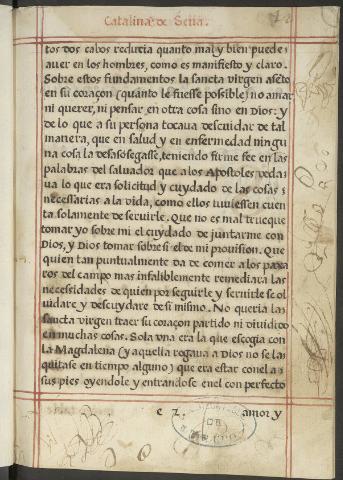 Catalina de Sena.
tos dos cabos reducia quanto mal y bien puede
auer en los hombres, como es manifiesto y claro.
Sobre estos fundamentos la sancta virgen asẽto
en su coraçon (quãto le fuesse possible) no amar
ni querer, ni pensar en otra cosa sino en Dios: y
de lo que a su persona tocaua descuidar de tal
manera, que en salud y en enfermedad ningu
na cosa la desasosegasse, teniendo firme fee en las
palabras del saluador que a los Apostoles veda
ua lo que era solicitud y cuydado de las cosas
necessarias a la vida, como ellos tuuiessen cuen
ta solamente de seruirle. Que no es mal trueque
tomar yo sobre mi el cuydado de juntarme con
Dios, y Dios tomar sobre si el de mi prouision. Que
quien tan puntualmente da de comer a los paxa
ros del campo mas infaliblemente remediara las
necessidades de quien por seguirle y seruirle se ol
uidare y descuydare de si mismo. No queria la
sancta virgen traer su coraçon partido ni diuidido
en muchas cosas. Sola vna era la que escogia con
la Magdalena (y aquella rogaua a Dios no se la
quitase en tiempo alguno) que era estar con el a
sus pies oyendole y entrandose en el con perfecto
e 2. amor y